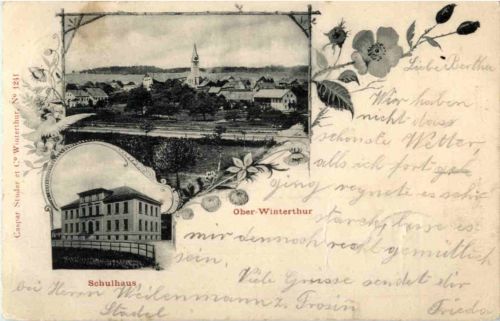 Caspar Studer et Cº Winterthur, Nº 1241
Ober-Winterthur
Schulhaus
Liebe Bertha
Wir haben
nicht das
schönste Wetter
als ich fort ge
ging regnete es
stark
mir dennoch recht gemütlich
sein.
Viele Grüsse sendet dir
Frieda
bei Herrn Weilenmann z. Frosin
Stadel